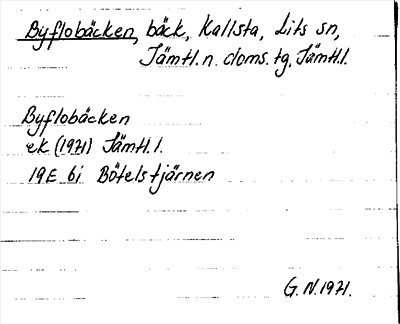 Byflobäcken, bäck, Kallsta, Lits sn,
Jämtl. n. doms. tg, Jämtl. l.
Byflobäcken
ek (1971) Jämtl. l.
19E 6i Bötelstjärnen
G. N. 1971.